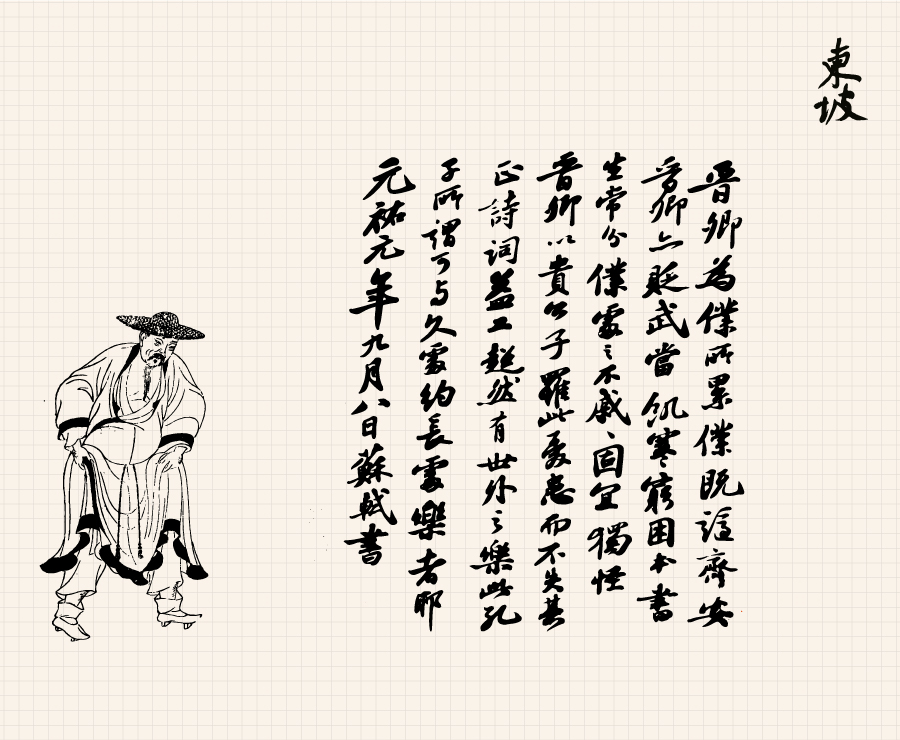 東坡
晉卿為僕所累僕既謫齊安
晉卿亦貶武當飢寒窮困本書
生常分僕處之不戚〻固宜獨怪
晉卿以貴公子罹此憂患而不失其
正詩詞益工超然有世外之樂此孔
子所謂可与久處約長處樂者耶
元祐元年九月八日蘇軾書